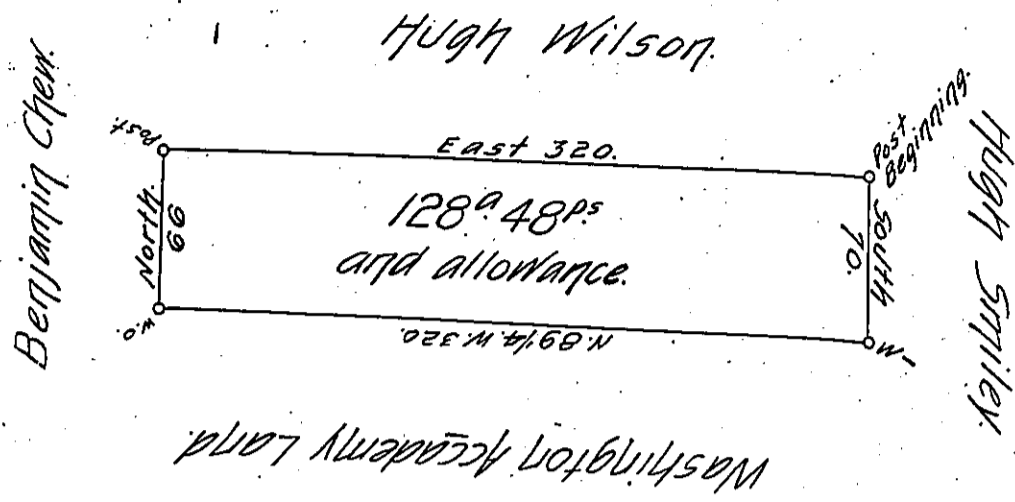 Hugh Wilson.
Benjamin Chew.
Post.
East 320.
Post
Beginning.
Hugh Smiley.
North.
66
128ᵃ 48ᵖˢ
and allowance.
South
70.
W.O.
N. 89 1/4 W. 320.
Washington Accademy Land.